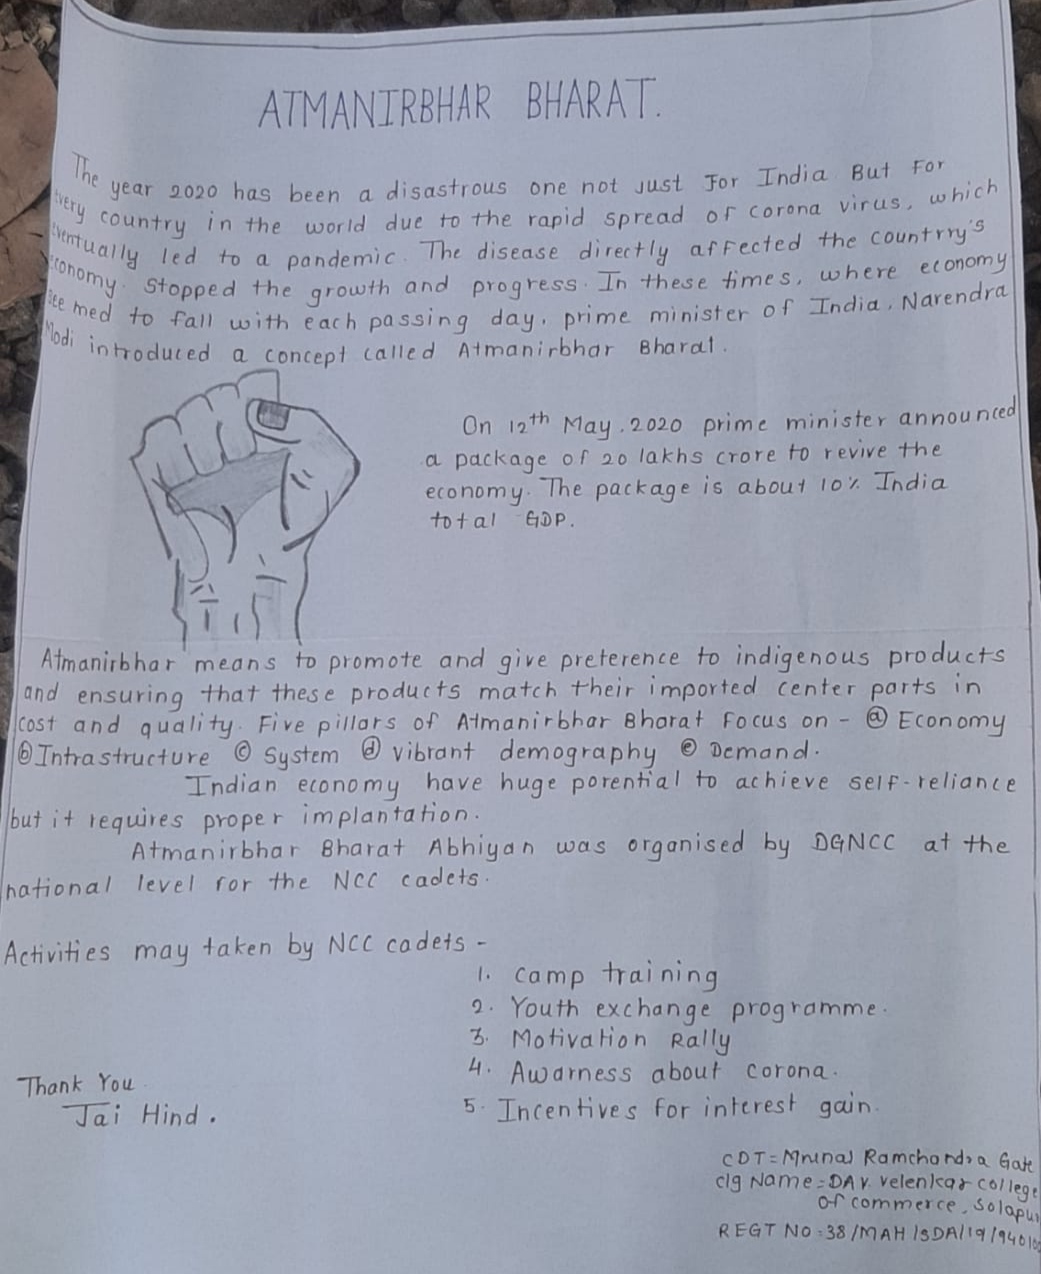 ATMANIRBHAR BHARAT.
The year 2020 has been a disastrous one not just For India But For
every country in the world due to the rapid spread of corona virus, which
eventually led to a pandemic. The disease directly affected the countrry's
economy. Stopped the growth and progress. In these times, where economy
see med to fall with each passing day, prime minister of India, Narendra
Modi introduced a concept called Atmanirbhar Bharat.
On 12th May, 2020 prime minister announced
a package of 20 lakhs crore to revive the
economy. The package is about 10% India
total GDP.
Atmanirbhar means to promote and give preterence to indigenous products
and ensuring that these products match their imported center parts in
cost and quality. Five pillars of Atmanirbhar Bharat Focus on - ⓐ Economy
ⓑ Intrastructure ⓒ System ⓓ vibrant demography ⓔ Demand.
Indian economy have huge porential to achieve self-reliance
but it requires proper implantation.
Atmanirbhar Bharat Abhiyan was organised by DGNCC at the
national level for the NCC cadets.
Activities may taken by NCC cadets -
1. camp training
2. Youth exchange programme.
3. Motivation Rally
4. Awarness about corona.
5. Incentives for interest gain.
Thank You
Jai Hind.
CDT = Mrunal Ramchandra Gate
clg Name = DAV. velenkar college
of commerce, Solapur
REGT NO = 38/MAH/SDA/19/